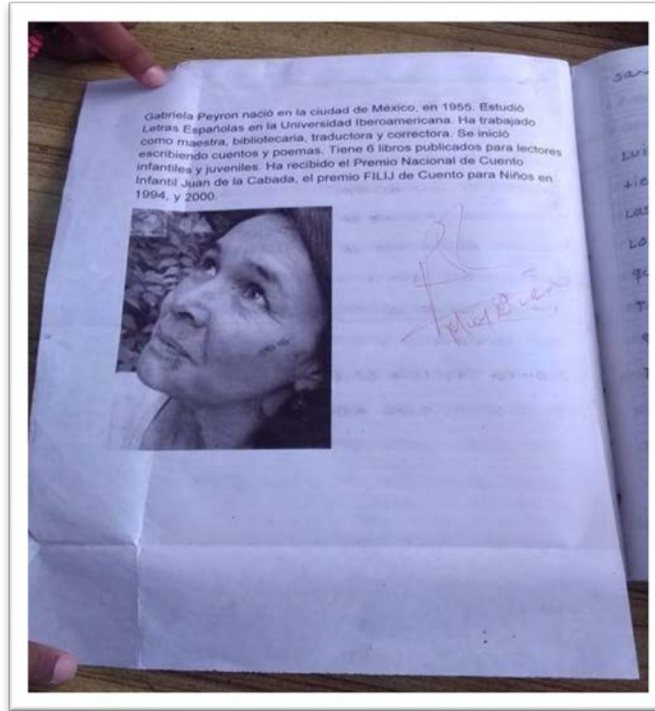 Gabriela Peyron nació en la ciudad de México, en 1955. Estudió
Letras Españolas en la Universidad Iberoamericana. Ha trabajado
como maestra, bibliotecaria, traductora y correctora. Se inició
escribiendo cuentos y poemas. Tiene 6 libros publicados para lectores
infantiles y juveniles. Ha recibido el Premio Nacional de Cuento
Infantil Juan de la Cabada, el premio FILIJ de Cuento para Niños en
1994, y 2000.